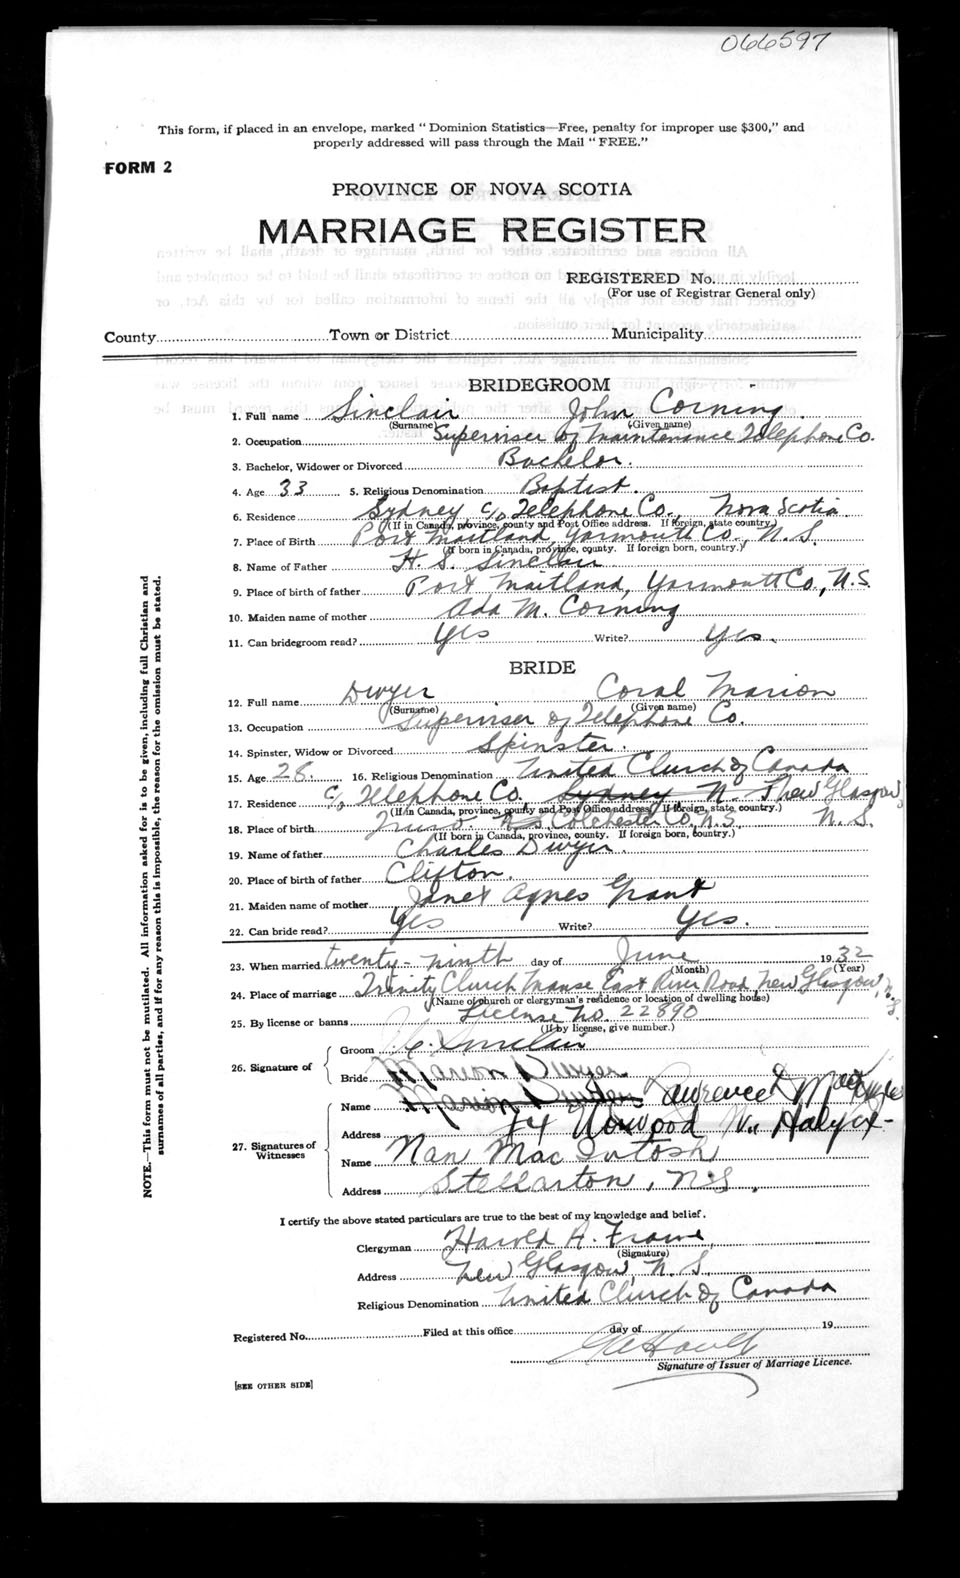 066597
This form, if placed in an envelope, marked "Dominion Statistics—Free, penalty for improper use $300," and
properly addressed will pass through the Mail "FREE."
FORM 2
PROVINCE OF NOVA SCOTIA
MARRIAGE REGISTER
REGISTERED No.
(For use of Registrar General only)
County Town or District Municipality
BRIDEGROOM
1. Full name Sinclair John Corning
(Surname) (Given name)
2. Occupation Superviser of Maintenance Telephone Co.
3. Bachelor, Widower or Divorced Bachelor.
4. Age 33 5. Religious Denomination Baptist.
6. Residence Sydney c/o Telephone Co., Nova Scotia.
(If in Canada, province, county and Post Office address. If foreign, state country.)
7. Place of Birth Port Maitland, Yarmouth Co., N.S.
(If born in Canada, province, county. If foreign born, country.)
8. Name of Father H. S. Sinclair
9. Place of birth of father Port Maitland, Yarmouth Co., N.S.
10. Maiden name of mother Ada M. Corning
11. Can bridegroom read? Yes Write? Yes.
BRIDE
12. Full name Dwyer Coral Marion
(Surname) (Given name)
13. Occupation Superviser of Telephone Co.
14. Spinster, Widow or Divorced Spinster.
15. Age 28. 16. Religious Denomination United Church of Canada
17. Residence c/o Telephone Co. Sydney N. New Glasgow,
(If in Canada, province, county and Post Office address. If foreign, state country.)
18. Place of birth Truro N.S. Colchester Co., N.S., N.S.
(If born in Canada, province, county. If foreign born, country.)
19. Name of father Charles Dwyer.
20. Place of birth of father Clifton.
21. Maiden name of mother Janet Agnes Grant
22. Can bride read? Yes Write? Yes.
23. When married twenty-ninth day of June 1932
(Month) (Year)
24. Place of marriage Trinity Church Manse East River Road, New Glasgow, N.S.
(Name of church or clergyman's residence or location of dwelling house)
25. By license or banns License No. 22890
(If by license, give number.)
26. Signature of
Groom J. C. Sinclair
Bride Marion Dwyer
27. Signatures of Witnesses
Name Marion Lawrence D
Address 74 Norwood Halifax
Name Nan MacIntosh
Address Stellarton, N.S.
I certify the above stated particulars are true to the best of my knowledge and belief.
Clergyman Harold A. Frame
(Signature)
Address New Glasgow, N.S.
Religious Denomination United Church of Canada
Registered No. Filed at this office day of 19
Signature of Issuer of Marriage Licence.
[SEE OTHER SIDE]
NOTE.—This form must not be mutilated. All information asked for is to be given, including full Christian and
surnames of all parties, and if for any reason this is impossible, the reason for the omission must be stated.